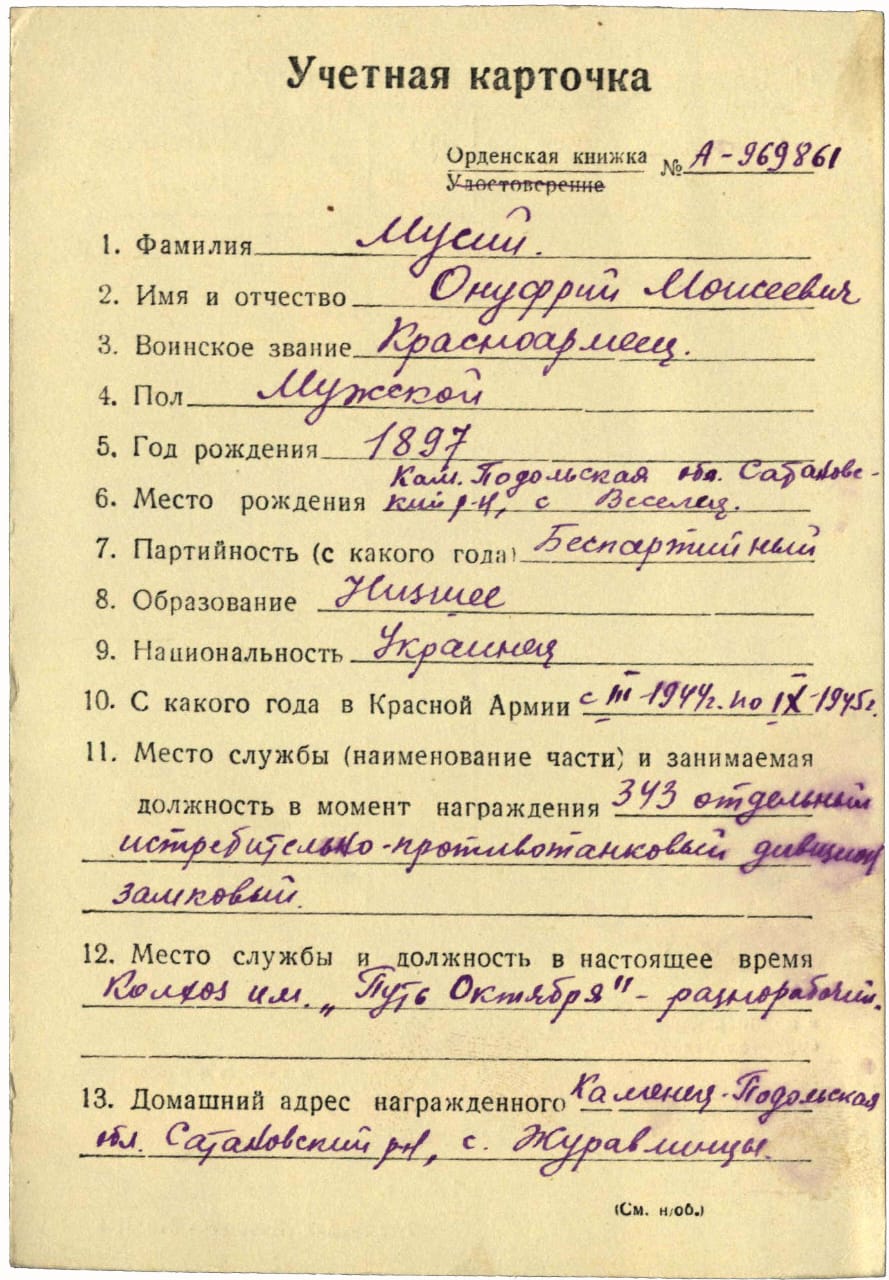 Учетная карточка
Орденская книжка № А-969861
Удостоверение
1. Фамилия Мусий.
2. Имя и отчество Онуфрий Моисеевич
3. Воинское звание Красноармеец.
4. Пол Мужской
5. Год рождения 1897
Кам. Подольская обл. Сатановс-
6. Место рождения кий р-н, с Веселец.
7. Партийность (с какого года) Беспартийный
8. Образование Низшее
9. Национальность Украинец
10. С какого года в Красной Армии с III-1944г. по IX-1945г.
11. Место службы (наименование части) и занимаемая
должность в момент награждения 343 отдельный
истребительно-противотанковый дивизион
замковый.
12. Место службы и должность в настоящее время
Колхоз им. „Путь Октября" - разнорабочий.
13. Домашний адрес награжденного Каменец-Подольская
обл. Сатановский р-н, с. Журавлинцы.
(См. н/об.)